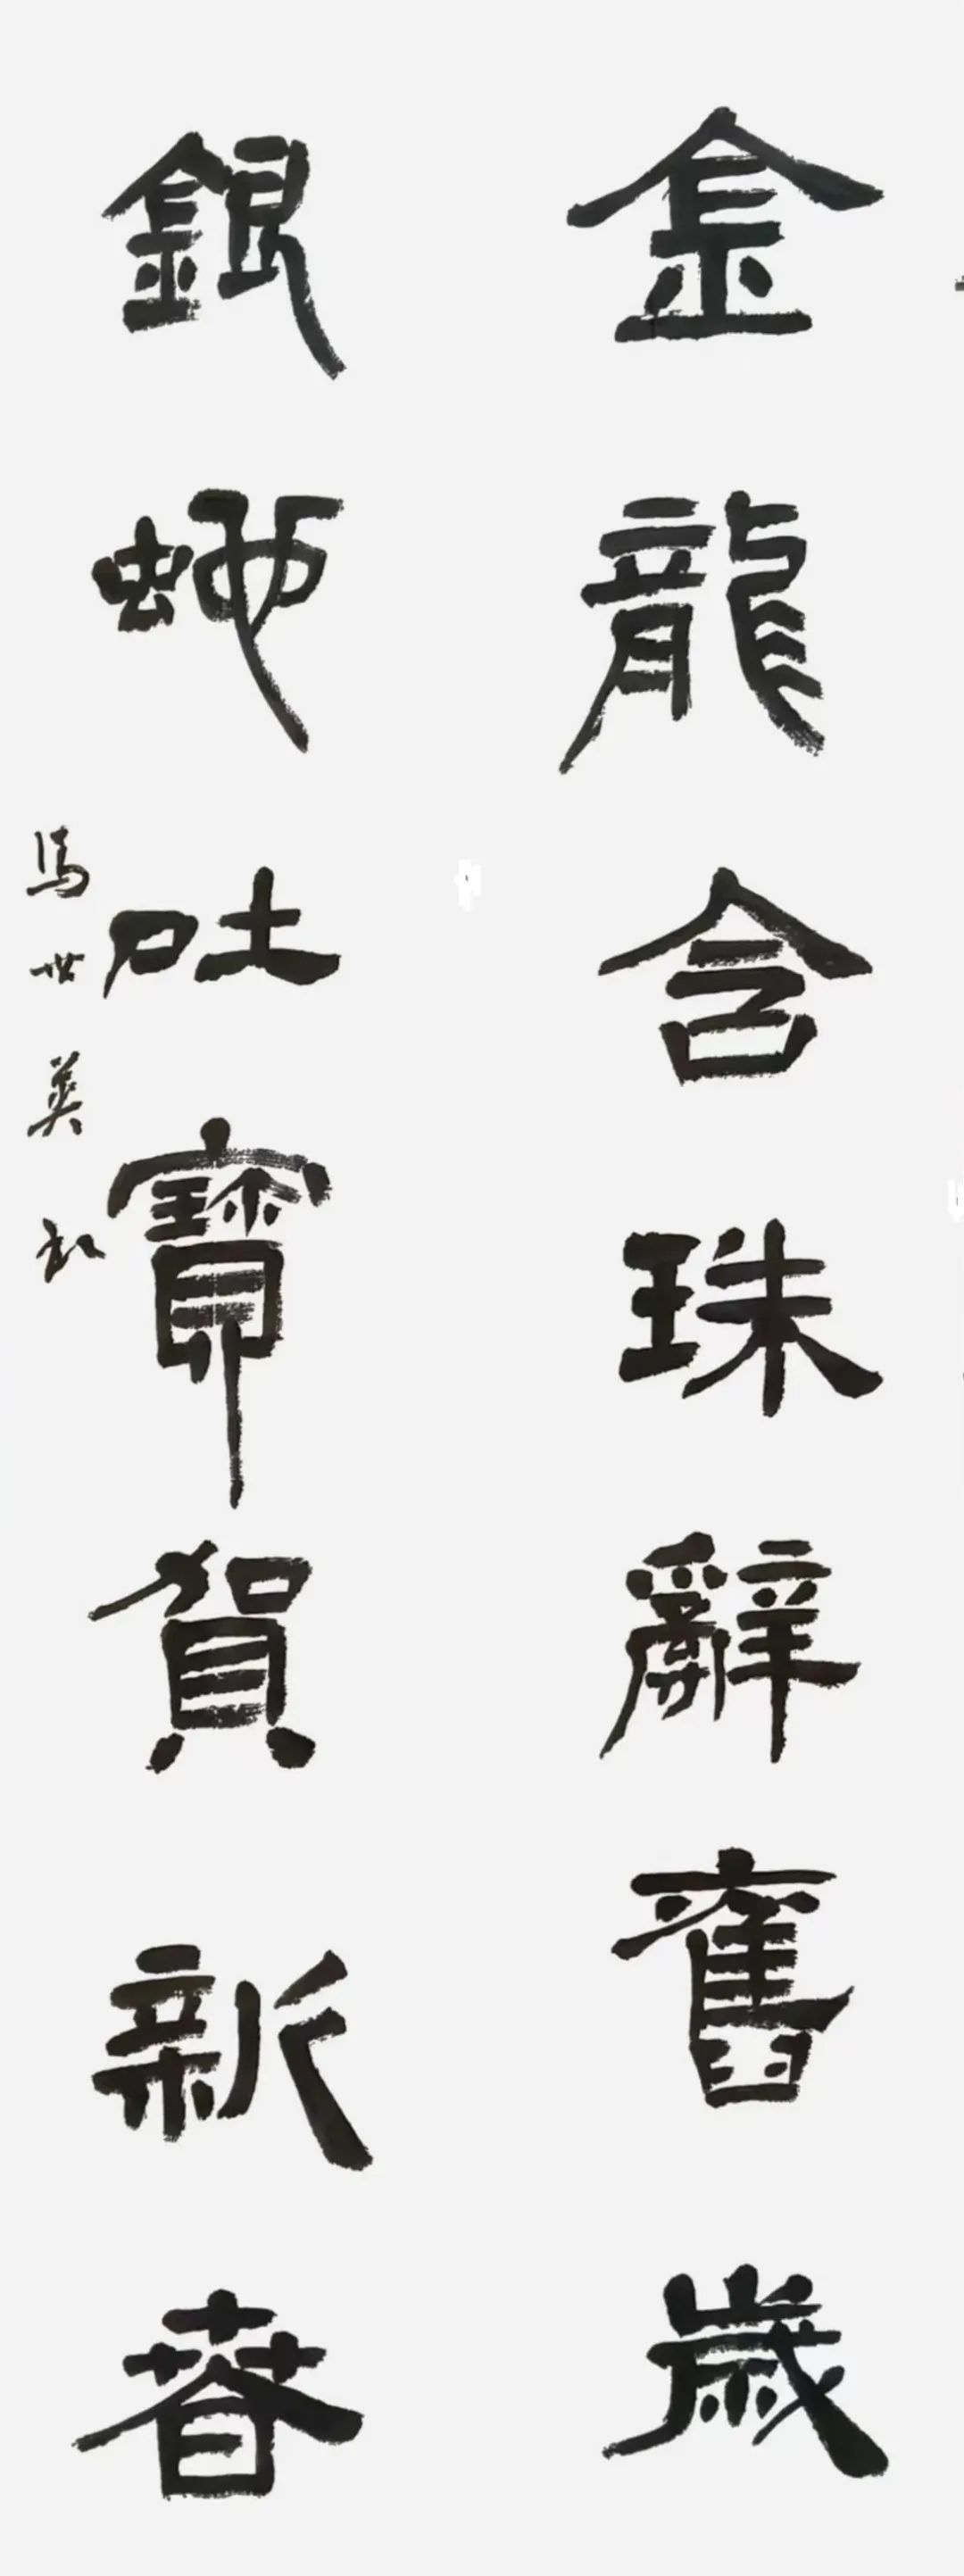 金龍含珠辭舊歲
銀蛇吐寶賀新春
馬世英